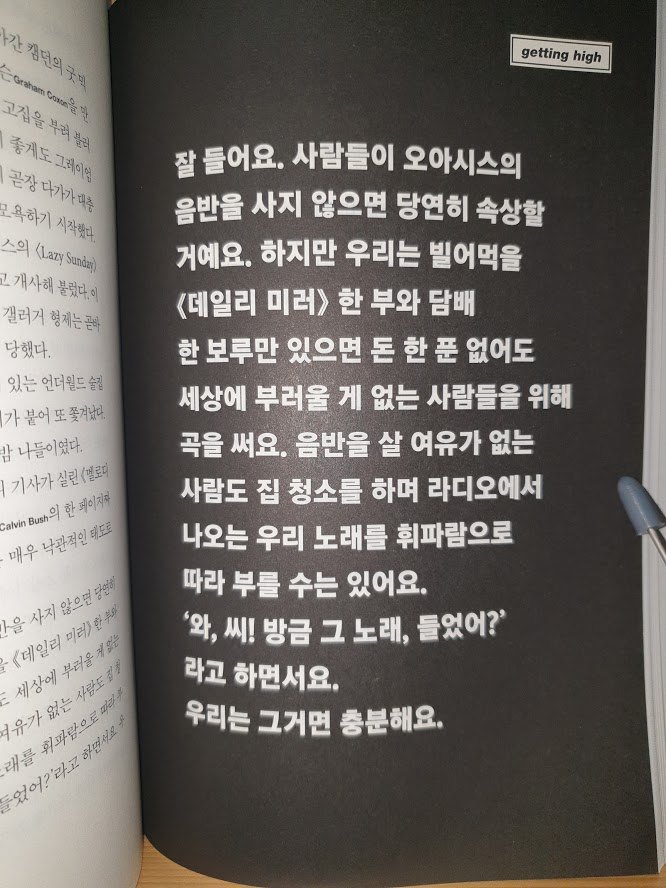 가간 캠던의 굿 믹
Graham Coxon을 만
고집을 부려 불러
좋게도 그레이엄
곧장 다가가 대충
모욕하기 시작했다.
스의 〈Lazy Sunday〉
고 개사해 불렀다. 이
갤러거 형제는 곧바
당했다.
있는 언더월드 술집
가 붙어 또 쫓겨났다.
밤 나들이였다.
기사가 실린 《멜로디
Calvin Bush의 한 페이지짜
매우 낙관적인 태도로
반을 사지 않으면 당연히
을 《데일리 미러》 한 부와
도 세상에 부러울 게 없는
여유가 없는 사람도 집 청
노래를 휘파람으로 따라 부
들었어?’라고 하면서요. 우
getting high
잘 들어요. 사람들이 오아시스의
음반을 사지 않으면 당연히 속상할
거예요. 하지만 우리는 빌어먹을
《데일리 미러》 한 부와 담배
한 보루만 있으면 돈 한 푼 없어도
세상에 부러울 게 없는 사람들을 위해
곡을 써요. 음반을 살 여유가 없는
사람도 집 청소를 하며 라디오에서
나오는 우리 노래를 휘파람으로
따라 부를 수는 있어요.
‘와, 씨! 방금 그 노래, 들었어?’
라고 하면서요.
우리는 그거면 충분해요.